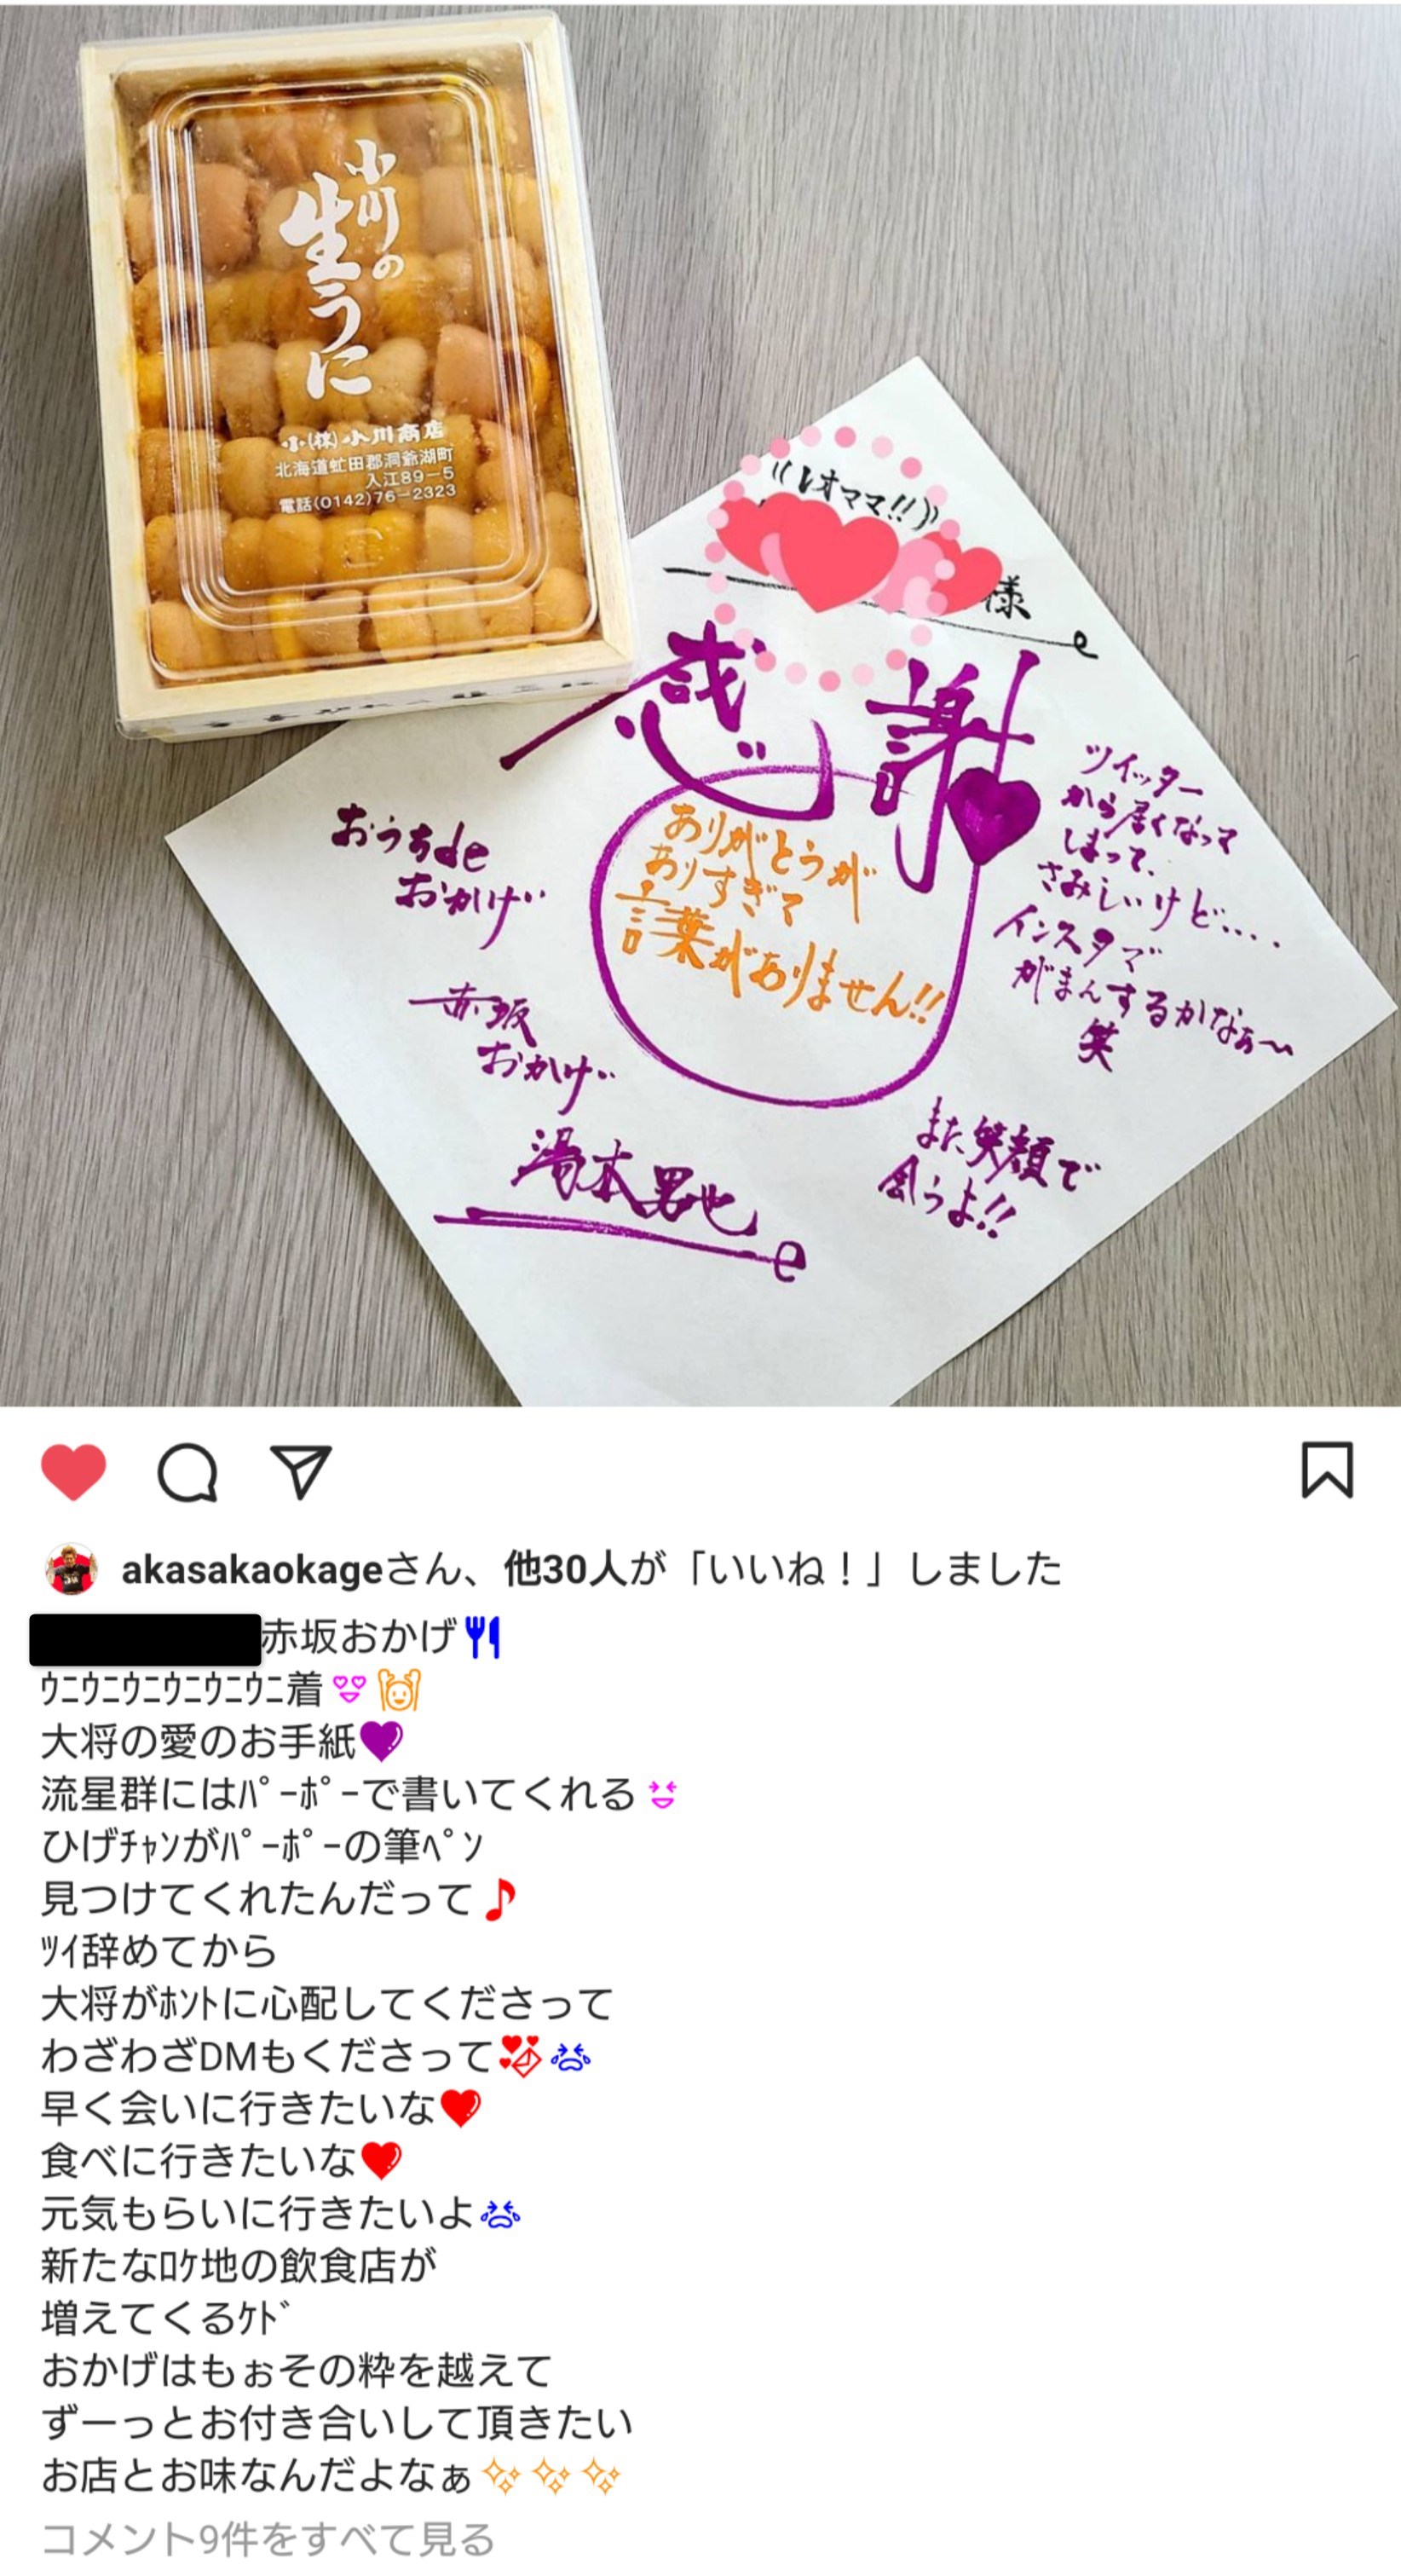 小川の
生うに
(株)小川商店
北海道虻田郡洞爺湖町
入江89−5
電話(0142)76−2323
((レオママ!!))
様
感謝
ありがとうが
ありすぎて
言葉がありません!!
ツイッター
から居なくなって
しまって、
さみしいけど....
インスタで
がまんするかなぁ〜
笑
また笑顔で
会うよ!!
おうちde
おかげ
赤坂
おかげ
湯本男也
akasakaokageさん、他30人が「いいね！」しました
赤坂おかげ🍴
ｳﾆｳﾆｳﾆｳﾆｳﾆｳﾆ着😍🙌
大将の愛のお手紙💜
流星群にはﾊﾟｰﾎﾟｰで書いてくれる😆
ひげﾁｬﾝがﾊﾟｰﾎﾟｰの筆ﾍﾟﾝ
見つけてくれたんだって♪
ﾂｲ辞めてから
大将がﾎﾝﾄに心配してくださって
わざわざDMもくださって💌😭
早く会いに行きたいな❤
食べに行きたいな❤
元気もらいに行きたいよ😭
新たなﾛｹ地の飲食店が
増えてくるｹﾄﾞ
おかげはもぉその粋を越えて
ずーっとお付き合いして頂きたい
お店とお味なんだよなぁ✨✨✨
コメント9件をすべて見る